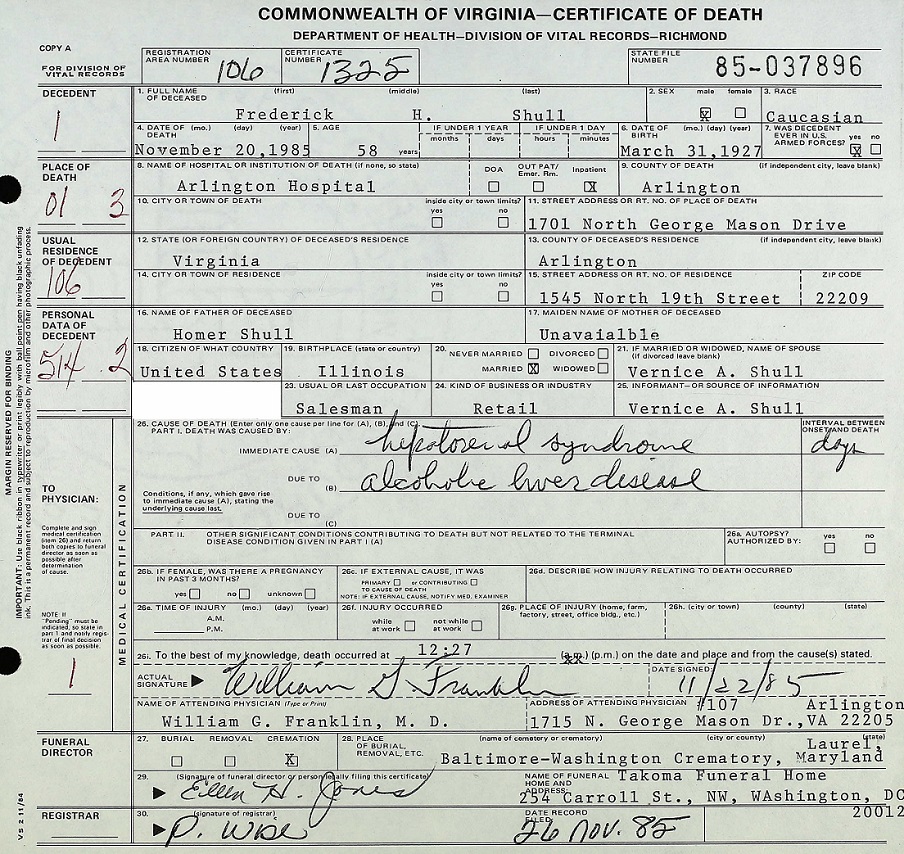 COMMONWEALTH OF VIRGINIA—CERTIFICATE OF DEATH
DEPARTMENT OF HEALTH—DIVISION OF VITAL RECORDS—RICHMOND
COPY A
FOR DIVISION OF VITAL RECORDS
REGISTRATION AREA NUMBER 106
CERTIFICATE NUMBER 1325
STATE FILE NUMBER 85-037896
DECEDENT
1
1. FULL NAME OF DECEASED (first) (middle) (last)
Frederick H. Shull
2. SEX male female
X
3. RACE
Caucasian
4. DATE OF DEATH (mo.) (day) (year)
November 20,1985
5. AGE
58 years
IF UNDER 1 YEAR
months days
IF UNDER 1 DAY
hours minutes
6. DATE OF BIRTH (mo.) (day) (year)
March 31,1927
7. WAS DECEDENT EVER IN U.S. ARMED FORCES? yes no
X
PLACE OF DEATH
01 3
8. NAME OF HOSPITAL OR INSTITUTION OF DEATH (if none, so state)
Arlington Hospital
DOA OUT PAT/ Emer. Rm. Inpatient
X
9. COUNTY OF DEATH (if independent city, leave blank)
Arlington
10. CITY OR TOWN OF DEATH inside city or town limits? yes no
11. STREET ADDRESS OR RT. NO. OF PLACE OF DEATH
1701 North George Mason Drive
USUAL RESIDENCE OF DECEDENT
106
12. STATE (OR FOREIGN COUNTRY) OF DECEASED'S RESIDENCE
Virginia
13. COUNTY OF DECEASED'S RESIDENCE (if independent city, leave blank)
Arlington
14. CITY OR TOWN OF RESIDENCE inside city or town limits? yes no
15. STREET ADDRESS OR RT. NO. OF RESIDENCE ZIP CODE
1545 North 19th Street 22209
PERSONAL DATA OF DECEDENT
514 2
16. NAME OF FATHER OF DECEASED
Homer Shull
17. MAIDEN NAME OF MOTHER OF DECEASED
Unavaialble
18. CITIZEN OF WHAT COUNTRY
United States
19. BIRTHPLACE (state or country)
Illinois
20. NEVER MARRIED DIVORCED
MARRIED X WIDOWED
21. IF MARRIED OR WIDOWED, NAME OF SPOUSE (if divorced leave blank)
Vernice A. Shull
23. USUAL OR LAST OCCUPATION
Salesman
24. KIND OF BUSINESS OR INDUSTRY
Retail
25. INFORMANT—OR SOURCE OF INFORMATION
Vernice A. Shull
MARGIN RESERVED FOR BINDING
IMPORTANT: Use black ribbon in typewriter or print legibly with ball point pen having black unfading
ink. This is a permanent record and subject to reproduction by microfilm and other photographic process.
TO PHYSICIAN:
Complete and sign medical certification (item 26) and return both copies to funeral director as soon as possible after determination of cause.
NOTE: If "Pending" must be indicated, so state in part 1 and notify registrar of final decision as soon as possible.
1
MEDICAL CERTIFICATION
26. CAUSE OF DEATH (Enter only one cause per line for (A), (B), and (C).
PART I. DEATH WAS CAUSED BY:
INTERVAL BETWEEN ONSET AND DEATH
IMMEDIATE CAUSE (A) hepatorenal syndrome days
DUE TO (B) alcoholic liver disease
Conditions, if any, which gave rise to immediate cause (A), stating the underlying cause last.
DUE TO (C)
PART II. OTHER SIGNIFICANT CONDITIONS CONTRIBUTING TO DEATH BUT NOT RELATED TO THE TERMINAL DISEASE CONDITION GIVEN IN PART I (A)
26a. AUTOPSY? AUTHORIZED BY: yes no
26b. IF FEMALE, WAS THERE A PREGNANCY IN PAST 3 MONTHS?
yes no unknown
26c. IF EXTERNAL CAUSE, IT WAS
PRIMARY or CONTRIBUTING
TO CAUSE OF DEATH
NOTE: IF EXTERNAL CAUSE, NOTIFY MED. EXAMINER
26d. DESCRIBE HOW INJURY RELATING TO DEATH OCCURRED
26e. TIME OF INJURY (mo.) (day) (year)
A.M.
P.M.
26f. INJURY OCCURRED
while at work not while at work
26g. PLACE OF INJURY (home, farm, factory, street, office bldg., etc.)
26h. (city or town) (county) (state)
26i. To the best of my knowledge, death occurred at 12:27 (a.m.) (p.m.) on the date and place and from the cause(s) stated.
ACTUAL SIGNATURE William G. Franklin
DATE SIGNED: 11/22/85
NAME OF ATTENDING PHYSICIAN (Type or Print)
William G. Franklin, M. D.
ADDRESS OF ATTENDING PHYSICIAN #107 Arlington
1715 N. George Mason Dr.,VA 22205
FUNERAL DIRECTOR
27. BURIAL REMOVAL CREMATION
X
28. PLACE OF BURIAL, REMOVAL, ETC. (name of cemetery or crematory) (city or county) (state)
Laurel,
Baltimore-Washington Crematory, Maryland
29. (Signature of funeral director or person legally filing this certificate)
Eileen H. Jones
NAME OF FUNERAL HOME AND ADDRESS: Takoma Funeral Home
254 Carroll St., NW, WAshington, DC
20012
REGISTRAR
30. (signature of registrar)
P. Wise
DATE RECORD FILED: 26 Nov. 85
VS 2 11/84